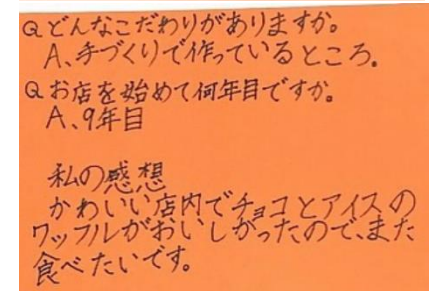 Qどんなこだわりがありますか。
A、手づくりで作っているところ。
Qお店を始めて何年目ですか。
A、9年目
私の感想
かわいい店内でチョコとアイスの
ワッフルがおいしかったので、また
食べたいです。